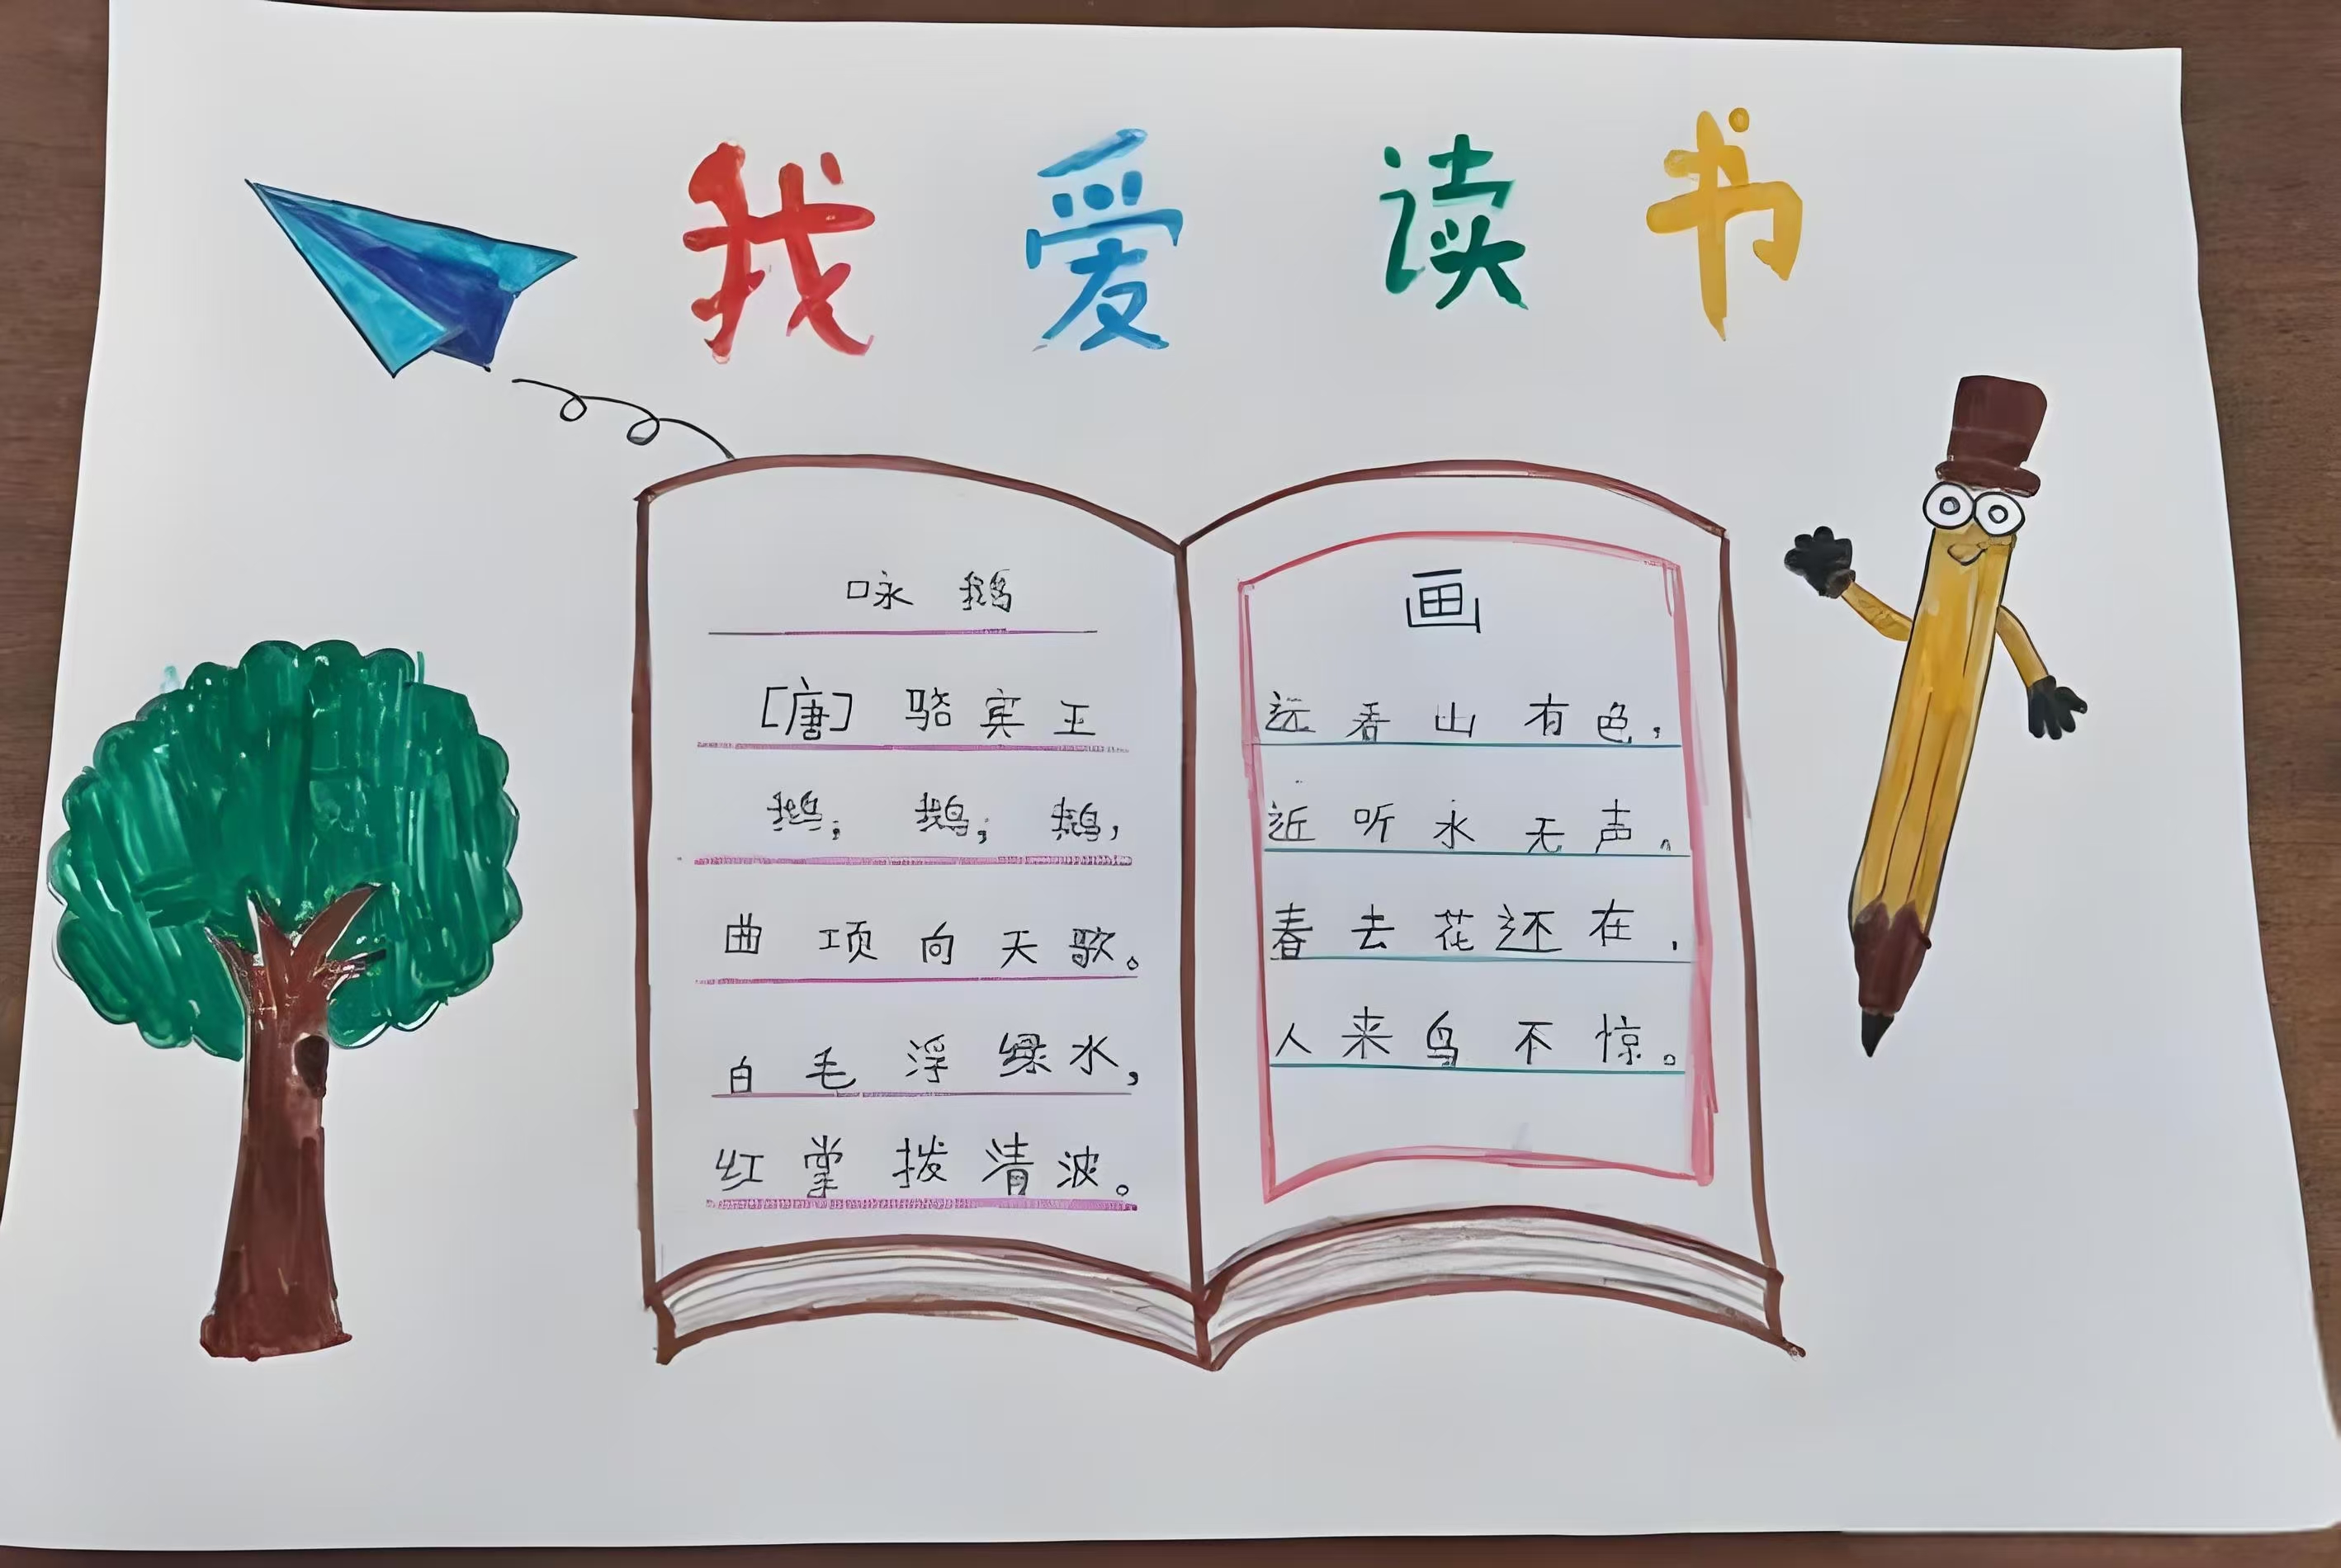 我爱读书
咏鹅
[唐] 骆宾王
鹅，鹅，鹅，
曲项向天歌。
白毛浮绿水，
红掌拨清波。
画
远看山有色，
近听水无声。
春去花还在，
人来鸟不惊。